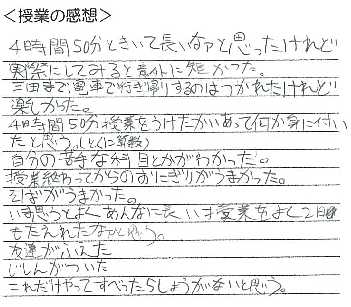 <授業の感想>
4時間50分ときいて長いなァと思ったけれど
実際にしてみると意外に短かった。
三田まで電車で行き帰りするのはつかれたけれど
楽しかった。
4時間50分授業をうけたかいあって何か身に付い
たと思う。(とくに算数)
自分の苦手な分野とかがわかった。
授業終わってからのおにぎりがうまかった。
そばがうまかった。
いま思うとよくあんなに長い授業をよく2日間
もたえれたなぁと思う。
友達がふえた
じしんがついた
これだけやってすべったらしょうがないと思う。